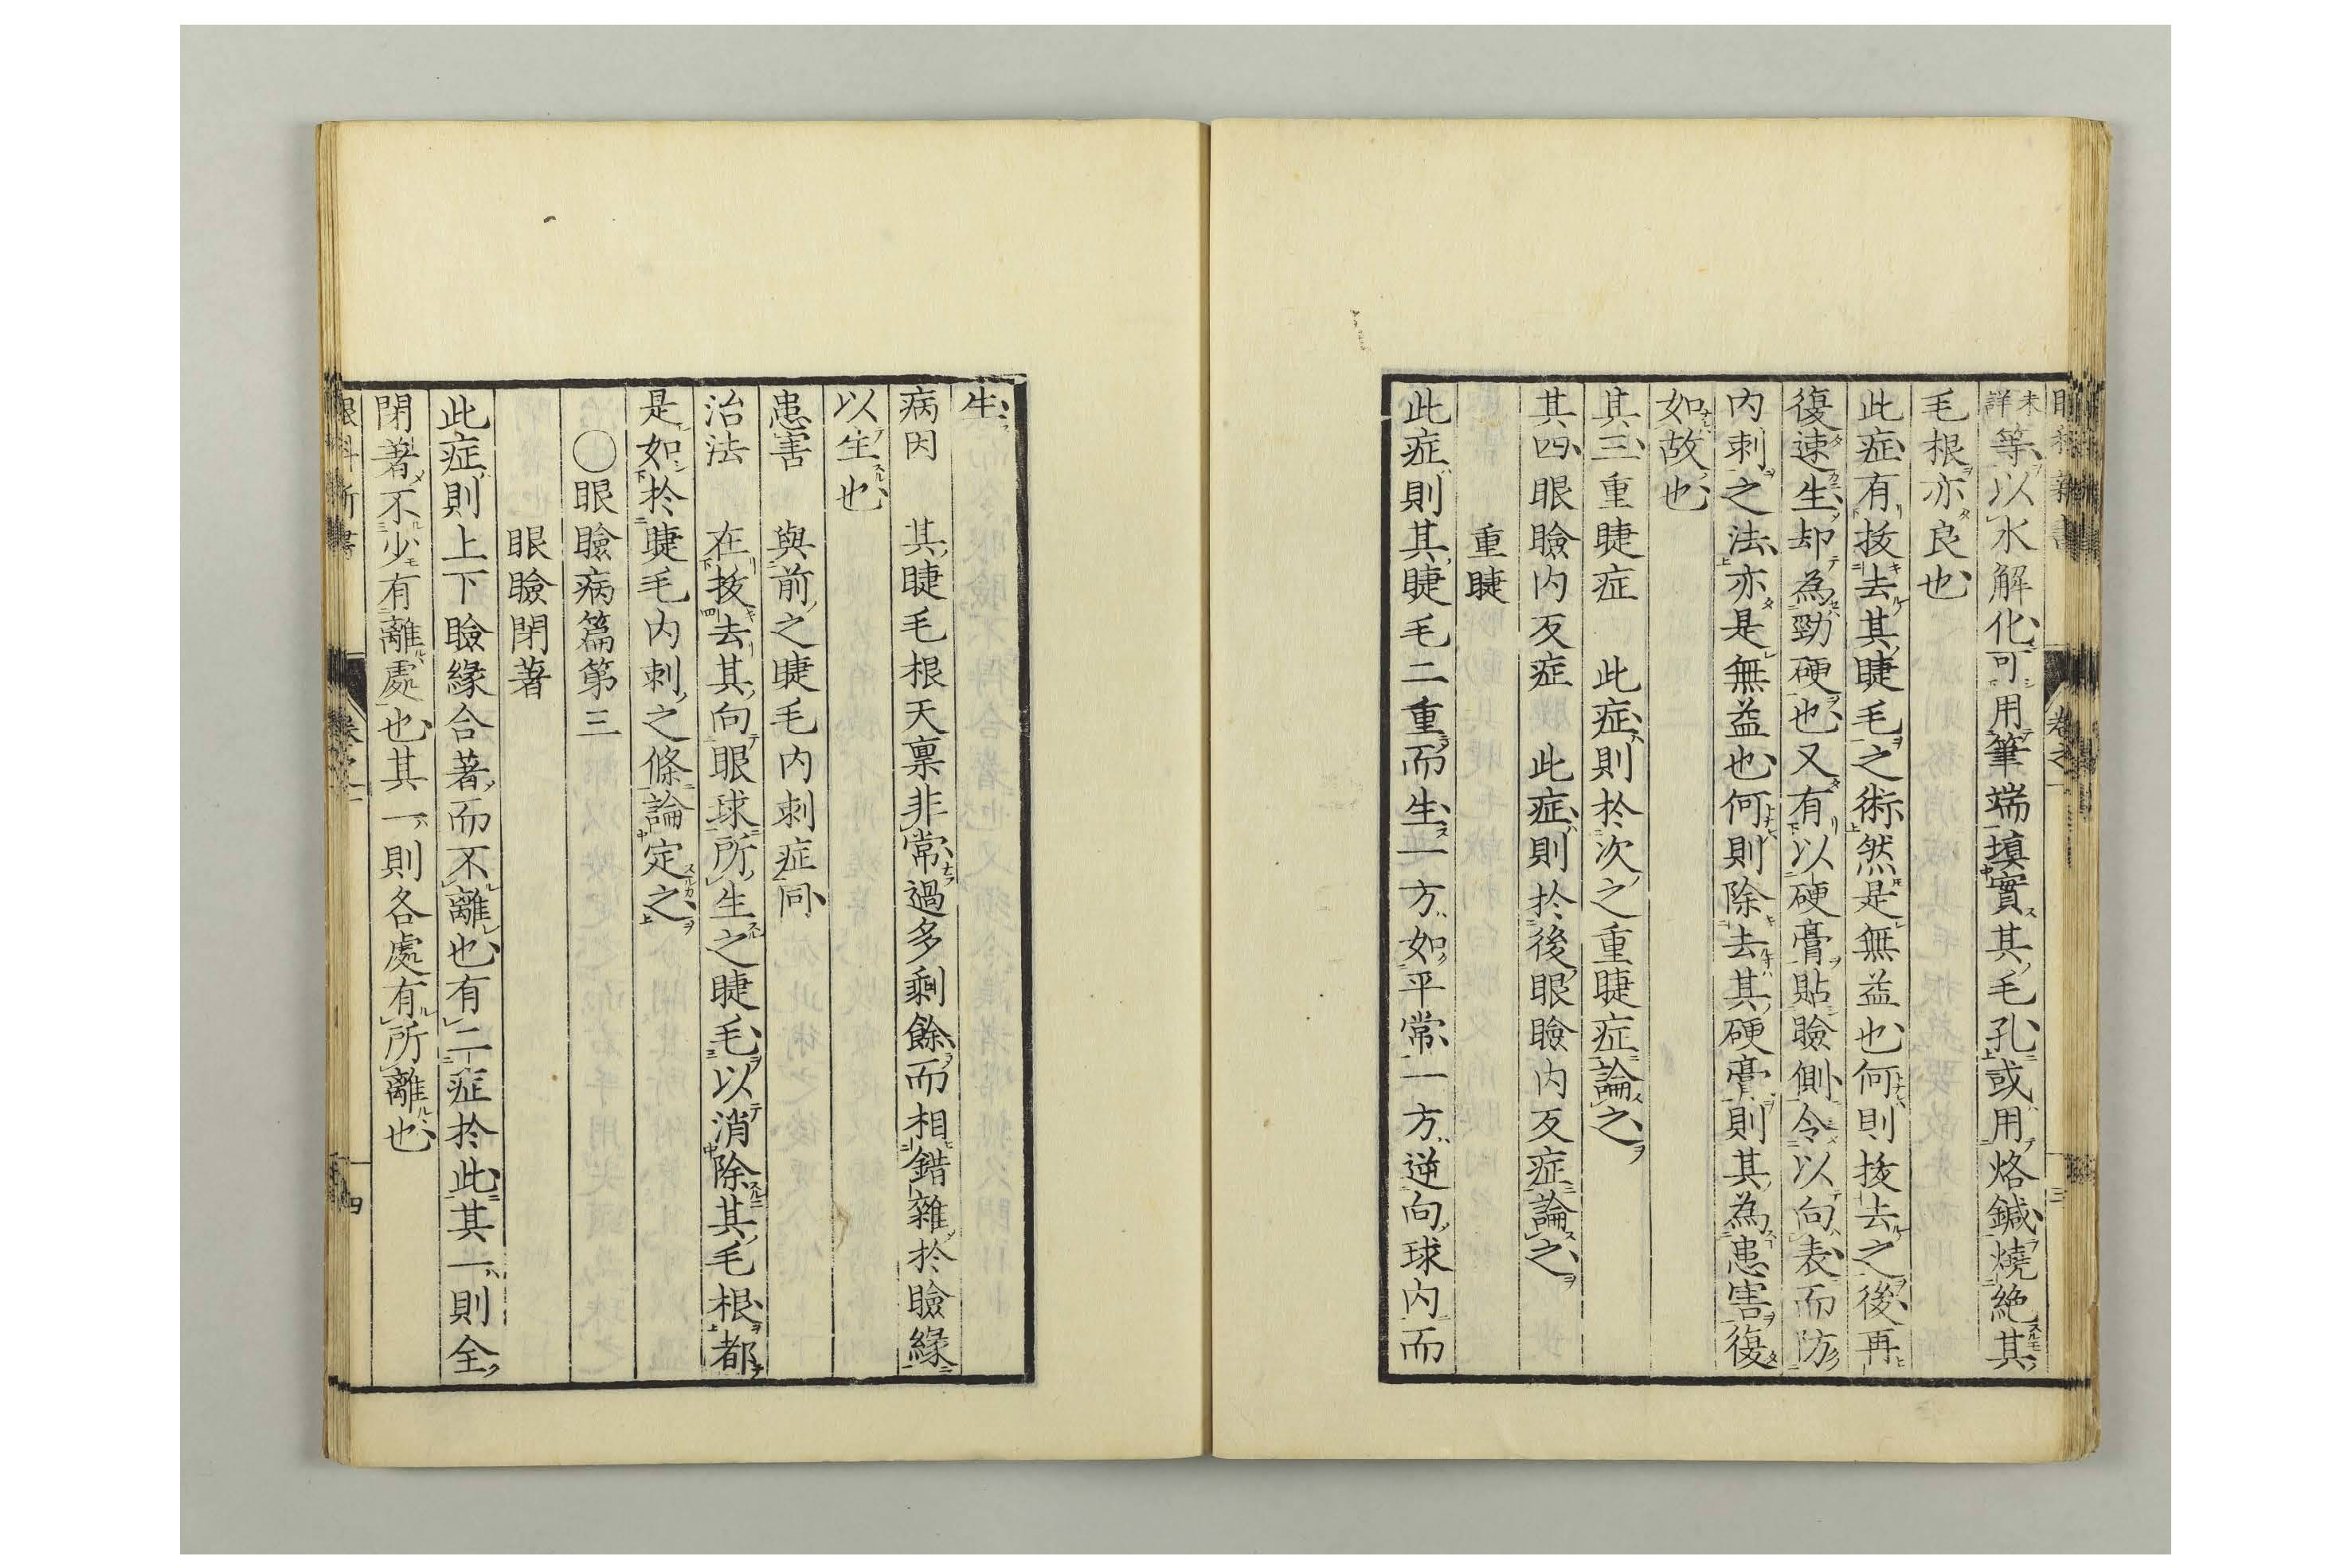 眼科新書 卷之一 三
未詳等以水解化可用筆端填實其毛孔或用烙鍼燒絶其
毛根亦良也
此症有拔去其睫毛之術然是無益也何則拔去之後再
復速生却為勁硬也又有以硬膏貼瞼側令以向表而防
内刺之法亦是無益也何則除去其硬膏則其為患害復
如故也
其三重睫症 此症則於次之重睫症論之
其四眼瞼内反症 此症則於後眼瞼内反症論之
重睫
此症則其睫毛二重而生一方如平常一方逆向球内而
生
病因 其睫毛根天稟非常過多剩餘而相錯雜於瞼緣
以生也
患害 與前之睫毛内刺症同
治法 在拔去其向眼球所生之睫毛以消除其毛根都
是如於睫毛内刺之條論定之
〇眼瞼病篇第三
眼瞼閉著
此症則上下瞼緣合著而不離也有二症於此其一則全
閉著不少有離處也其一則各處有所離也
眼科新書 卷之一 四